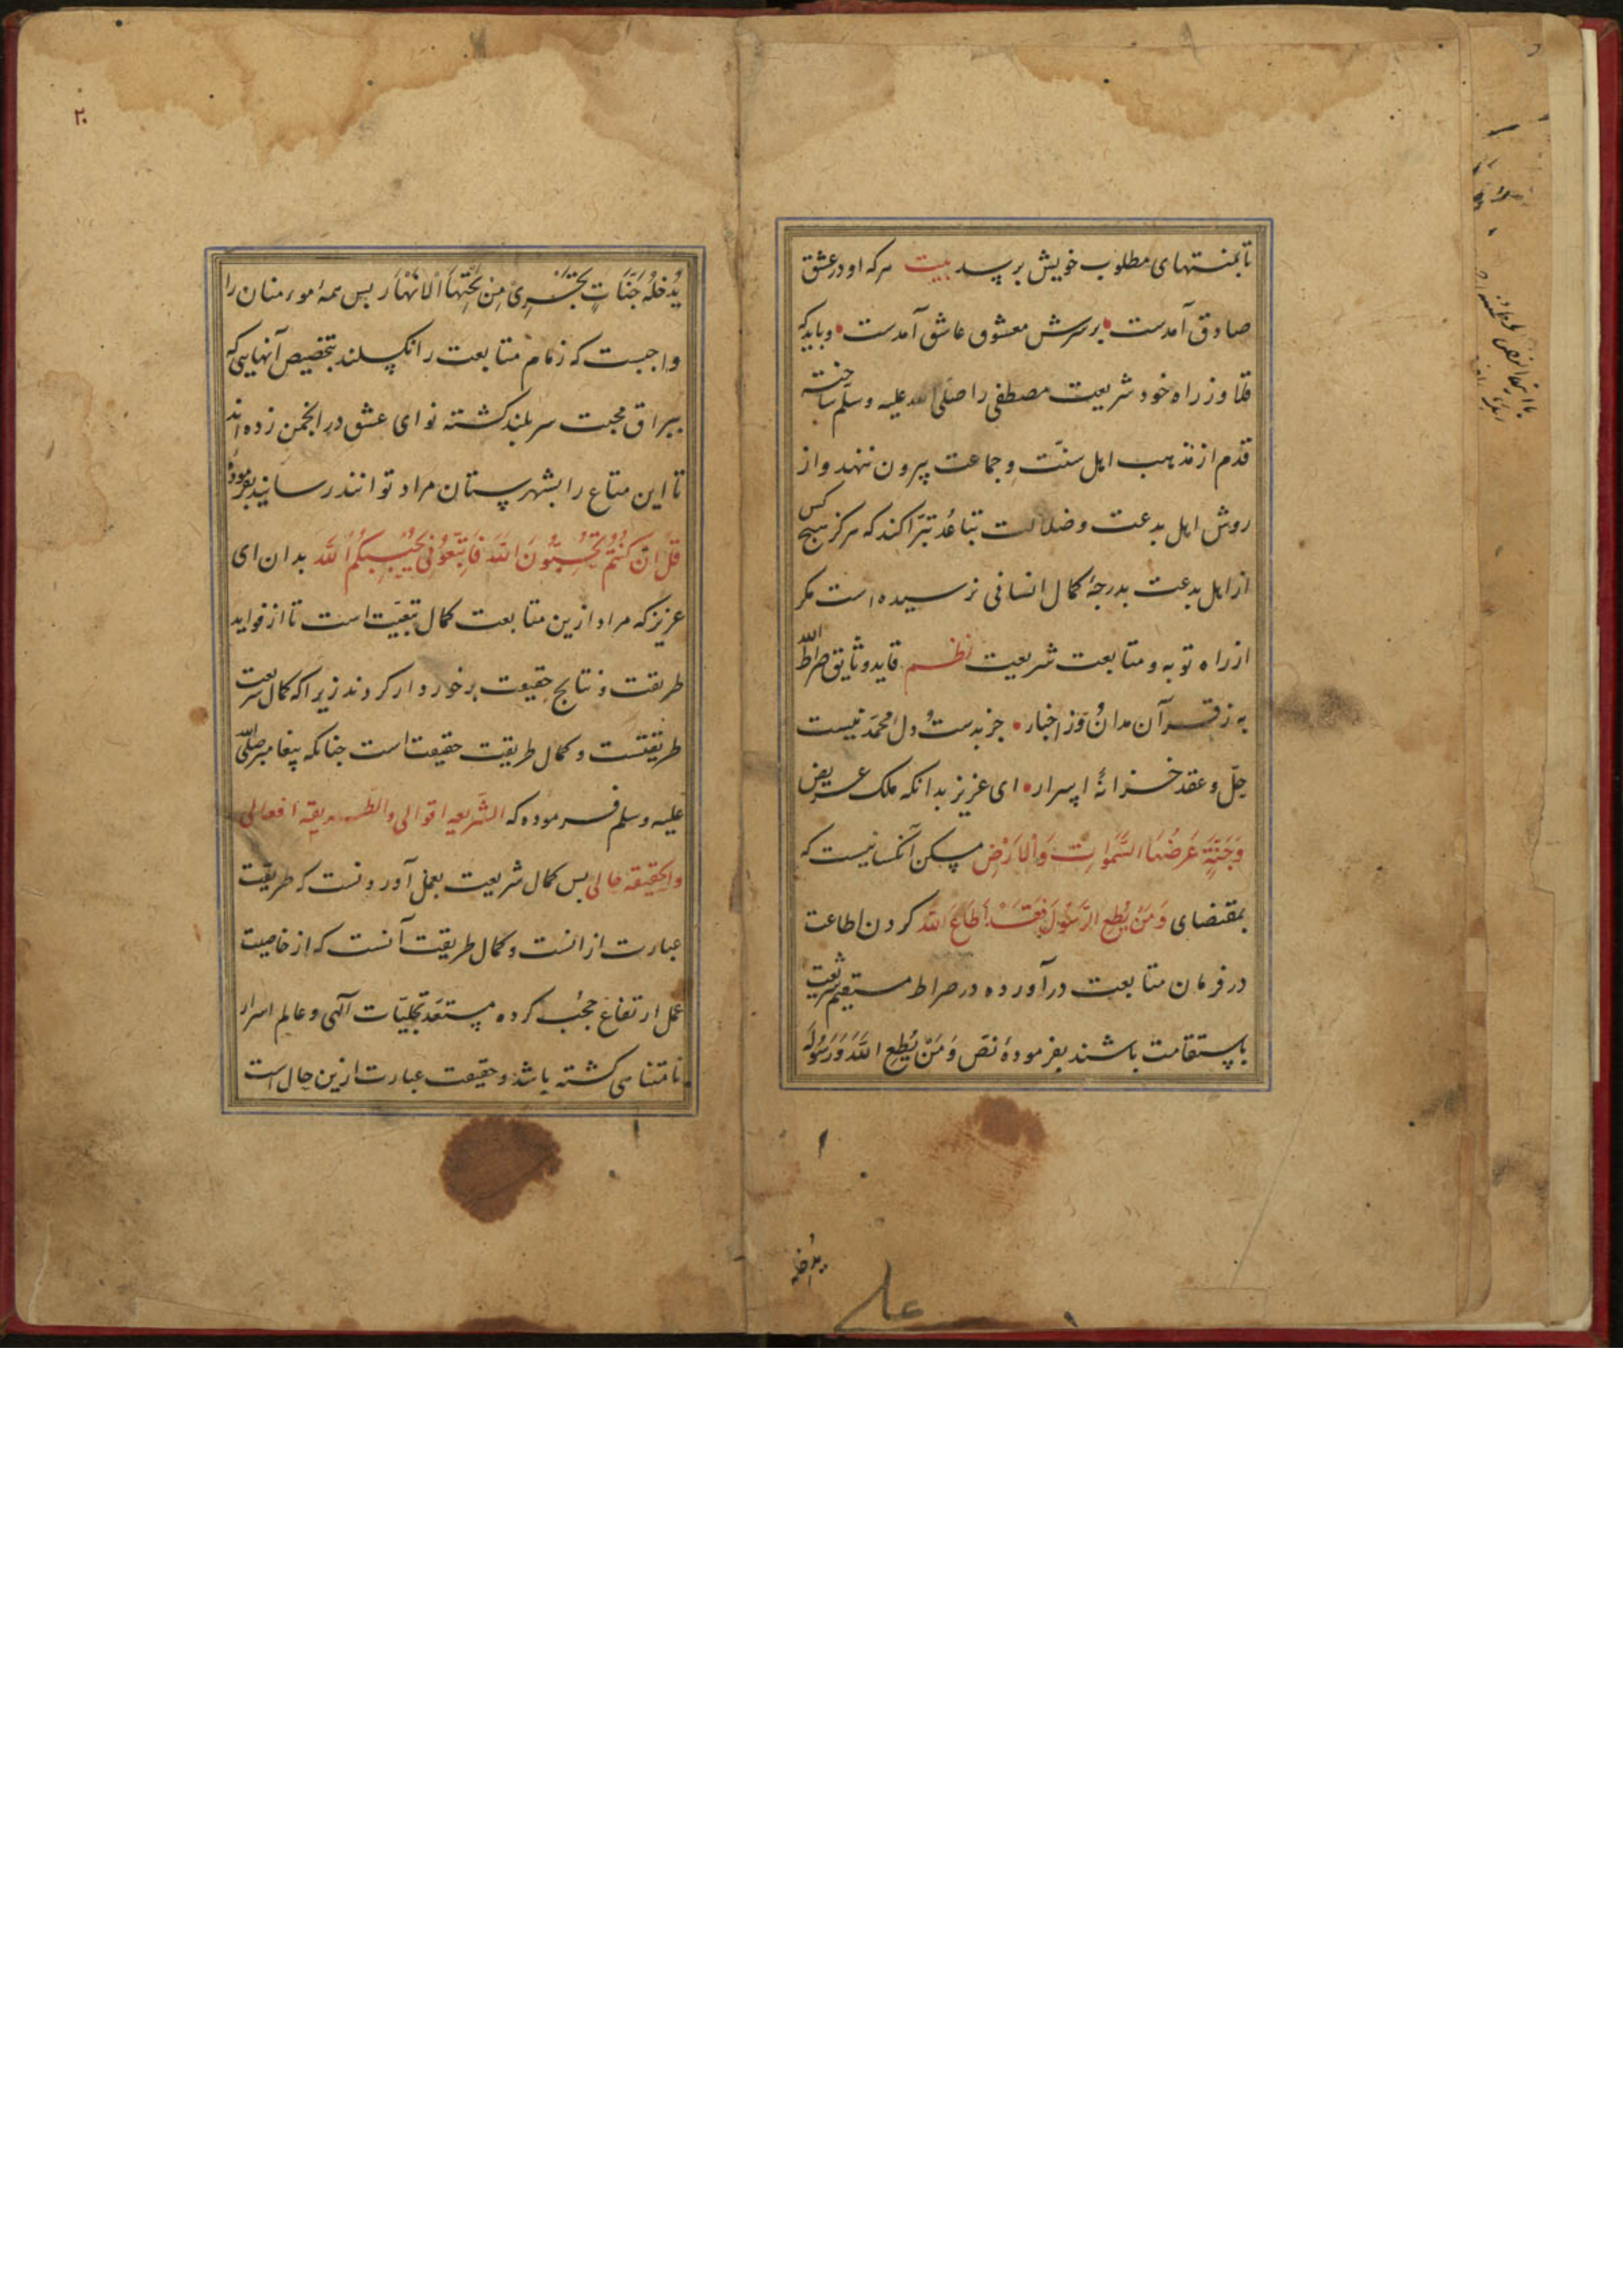 تا بمنتهای مطلوب خویش برسد بیت هر که او در عشق
صادق آمدست • بر سرش معشوق عاشق آمدست • و باید که
قلاوز راه خود شریعت مصطفی را صلی الله علیه وسلّم ساخته
قدم از مذهب اهل سنّت و جماعت بیرون ننهد و از
روش اهل بدعت و ضلالت تباعُد تبرّا کند که هرکز هیچ کس
از اهل بدعت بدرجهٔ کمال انسانی نرسیده است مکر
از راه توبه و متابعت شریعت نظم قاید و ثایق صراط الله
به ز قرآن مدان و ز اخبار • جز بدست و دل محمّد نیست
حلّ و عقد خزانهٔ اسرار • ای عزیز بدانکه ملک عریض
وَجَنَّةٍ عَرضُهَا السَّمَوَاتُ وَالْاَرْضُ مسکن آنکسانیست که
بمقتضای وَمَنْ یُطِعِ الرَّسُولَ فَقَدْ اَطَاعَ اللَّهَ کردن اطاعت
در فرمان متابعت درآورده در صراط مستقیم شریعت
باستقامت باشند بفرمودهٔ نصّ وَمَنْ یُطِعِ اللَّهَ وَرَسُولَهُ
یدخله
علی
۲۰
یُدْخِلْهُ جَنَّاتٍ تَجْرِی مِنْ تَحْتِهَا الْاَنْهَارُ بس همه مومنان را
واجبست که زمام متابعت را نکسلند بتخصیص آنهایی که
ببراق محبت سربلند کشته نوای عشق در انجمن زده اند
تا این متاع را بشهرستان مراد توانند رسانید بفرمودهٔ
قُلْ اِنْ کُنْتُمْ تُحِبُّونَ اللَّهَ فَاتَّبِعُونِی یُحْبِبْکُمُ اللَّهُ بدان ای
عزیز که مراد ازین متابعت کمال تبعیّت است تا از فواید
طریقت و نتایج حقیقت برخوردار کردند زیرا که کمال شریعت
طریقتست و کمال طریقت حقیقت است جنانکه پیغامبر صلّی الله
علیه وسلم فرموده که الشّریعه اقوالی والطّریقه افعالی
والحقیقه حالی بس کمال شریعت بعمل آوردنست که طریقت
عبارت از انست و کمال طریقت آنست که از خاصیت
عمل ارتفاع حجُب کرده مستعدّ تجلیّات آلهی و عالم اسرار
نامتناهی کشته باشد و حقیقت عبارت ازین حال است